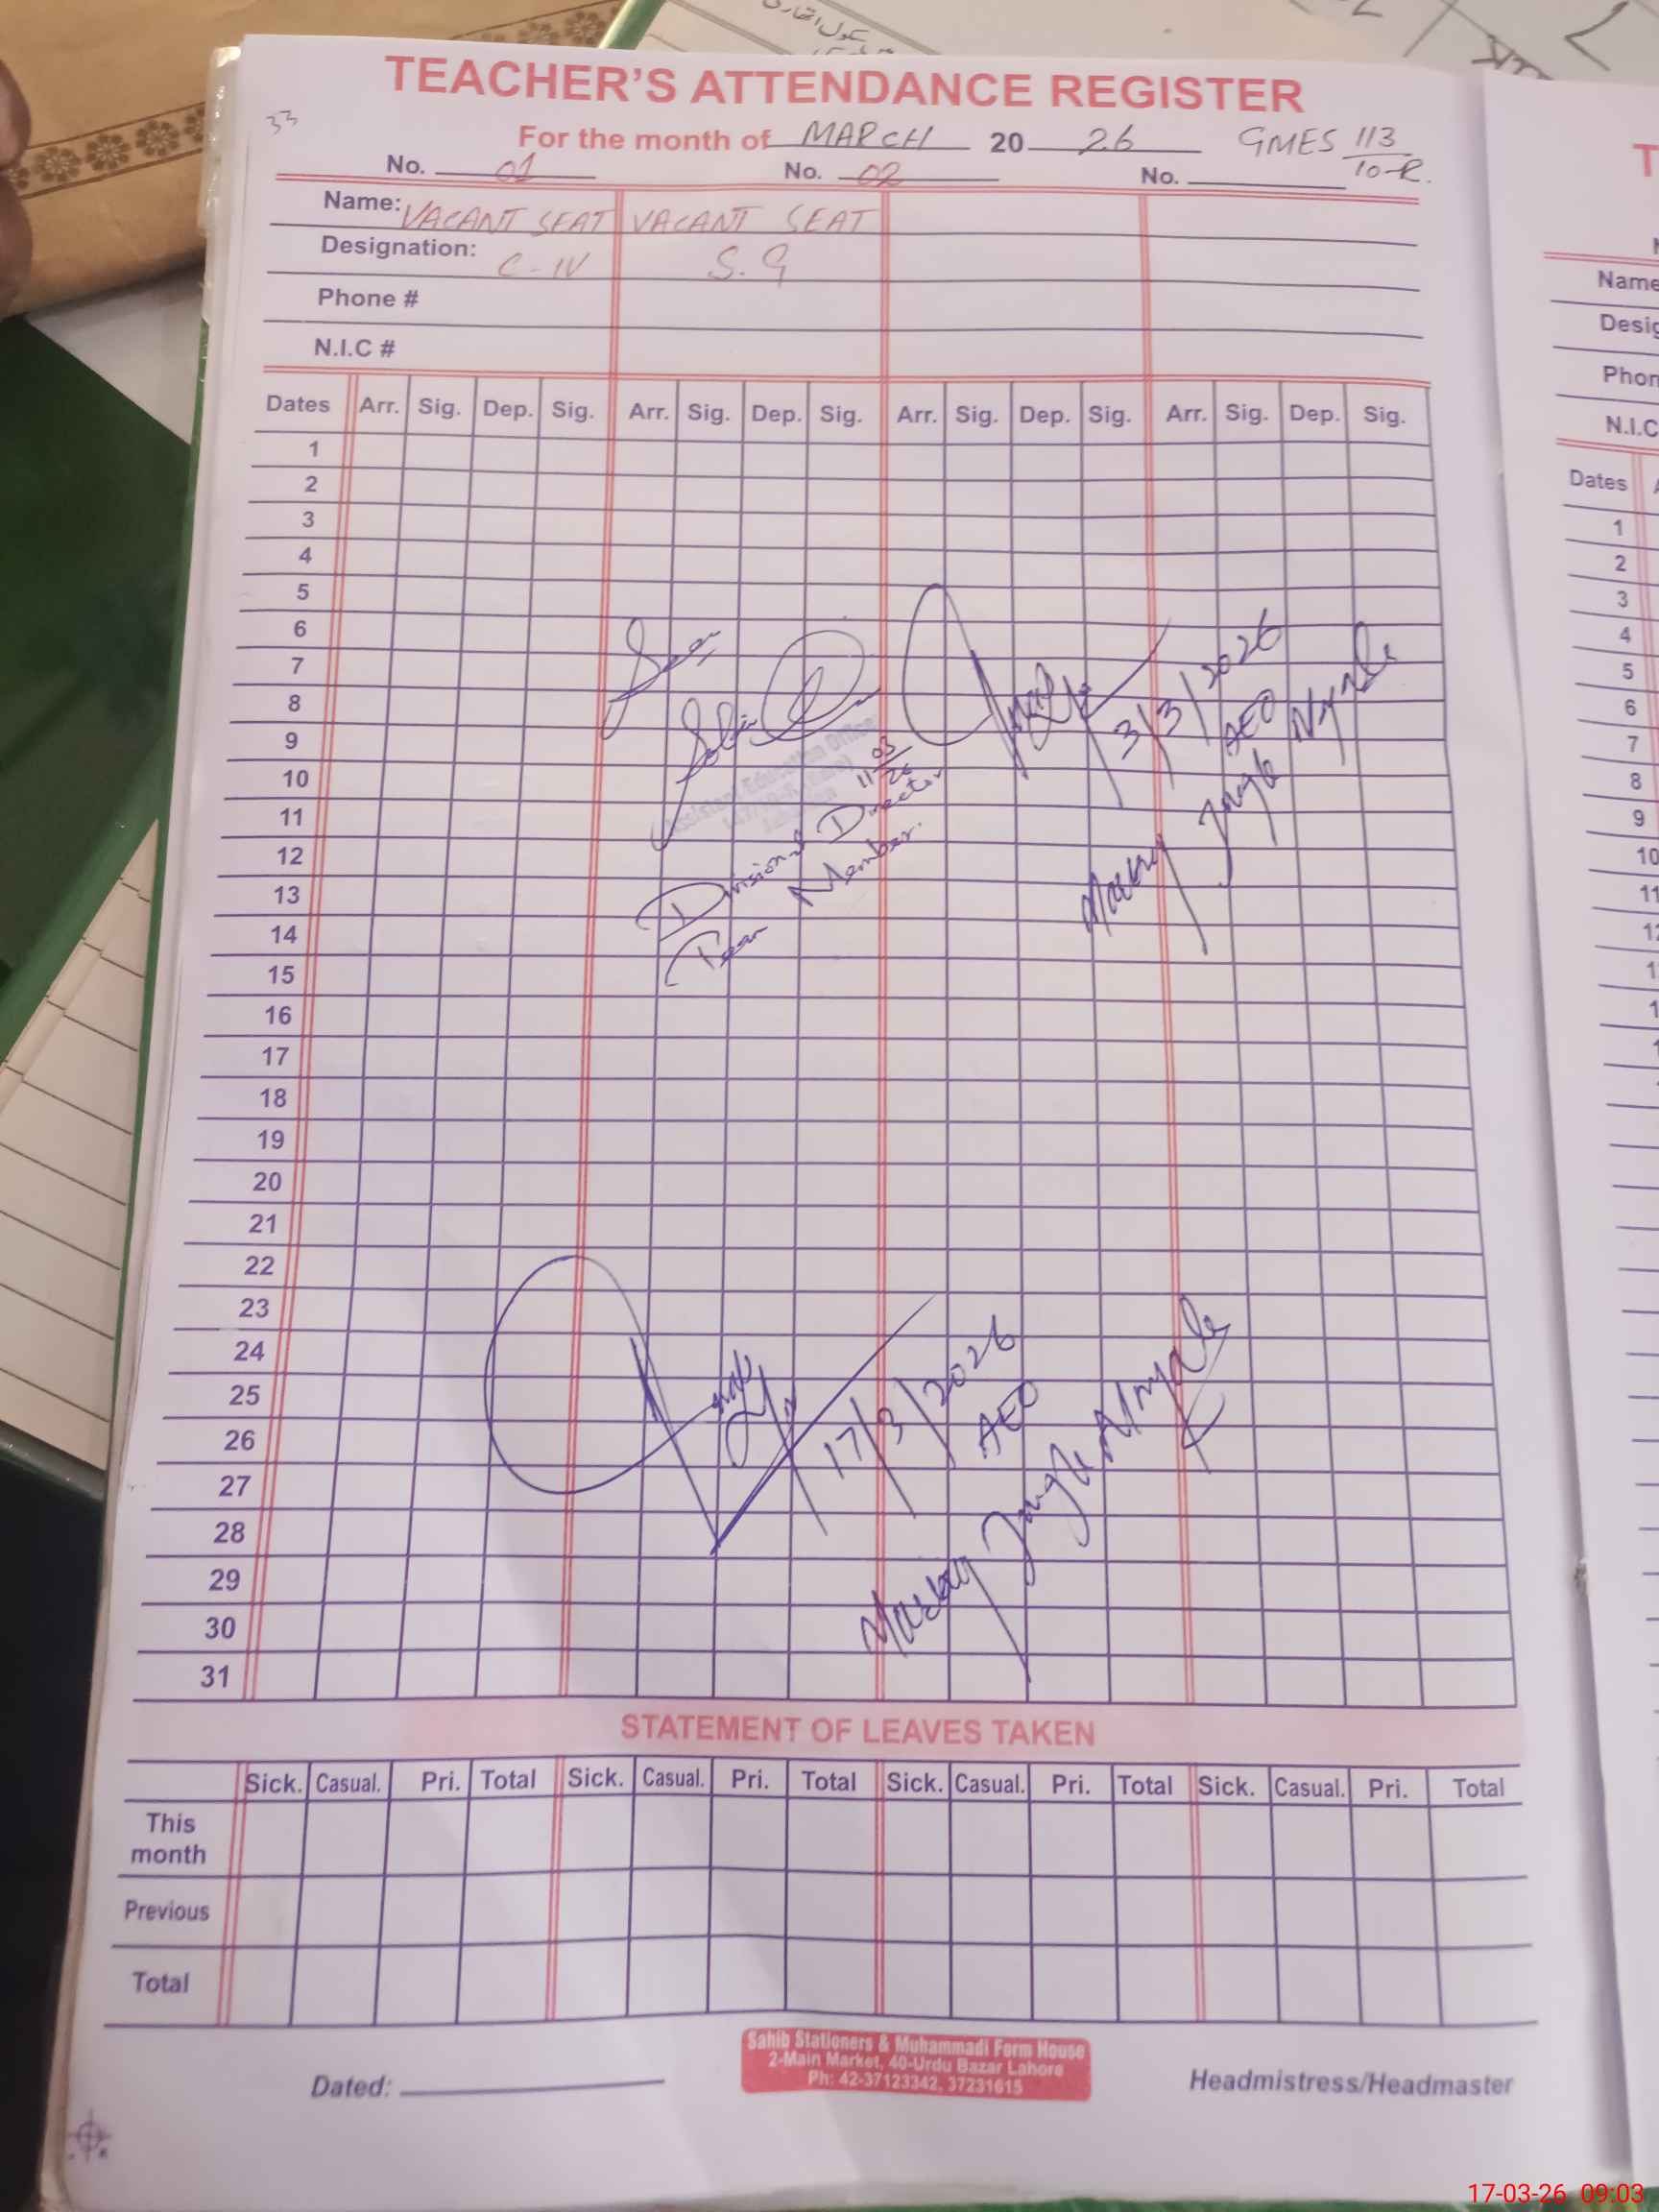 TEACHER'S ATTENDANCE REGISTER
33
For the month of MARCH 20 26 GMES 113/10-R.
No. 01 No. 02 No.
Name: VACANT SEAT VACANT SEAT
Designation: C-IV S.G
Phone #
N.I.C #
Dates Arr. Sig. Dep. Sig. Arr. Sig. Dep. Sig. Arr. Sig. Dep. Sig. Arr. Sig. Dep. Sig.
1
2
3
4
5
6
7
8
9
10
11
12
13
14
15
16
17
18
19
20
21
22
23
24
25
26
27
28
29
30
31
3/3/2026
AEO
Assistant Education Office
11/03/26
Divisional Director
Team Member.
17/3/2026
AEO
STATEMENT OF LEAVES TAKEN
Sick. Casual. Pri. Total Sick. Casual. Pri. Total Sick. Casual. Pri. Total Sick. Casual. Pri. Total
This month
Previous
Total
Dated:
Sahib Stationers & Muhammadi Form House
2-Main Market, 40-Urdu Bazar Lahore
Ph: 42-37123342, 37231615
Headmistress/Headmaster
T
Name
Desig
Phon
N.I.C
Dates
1
2
3
4
5
6
7
8
9
10
11
12
17-03-26 09:03